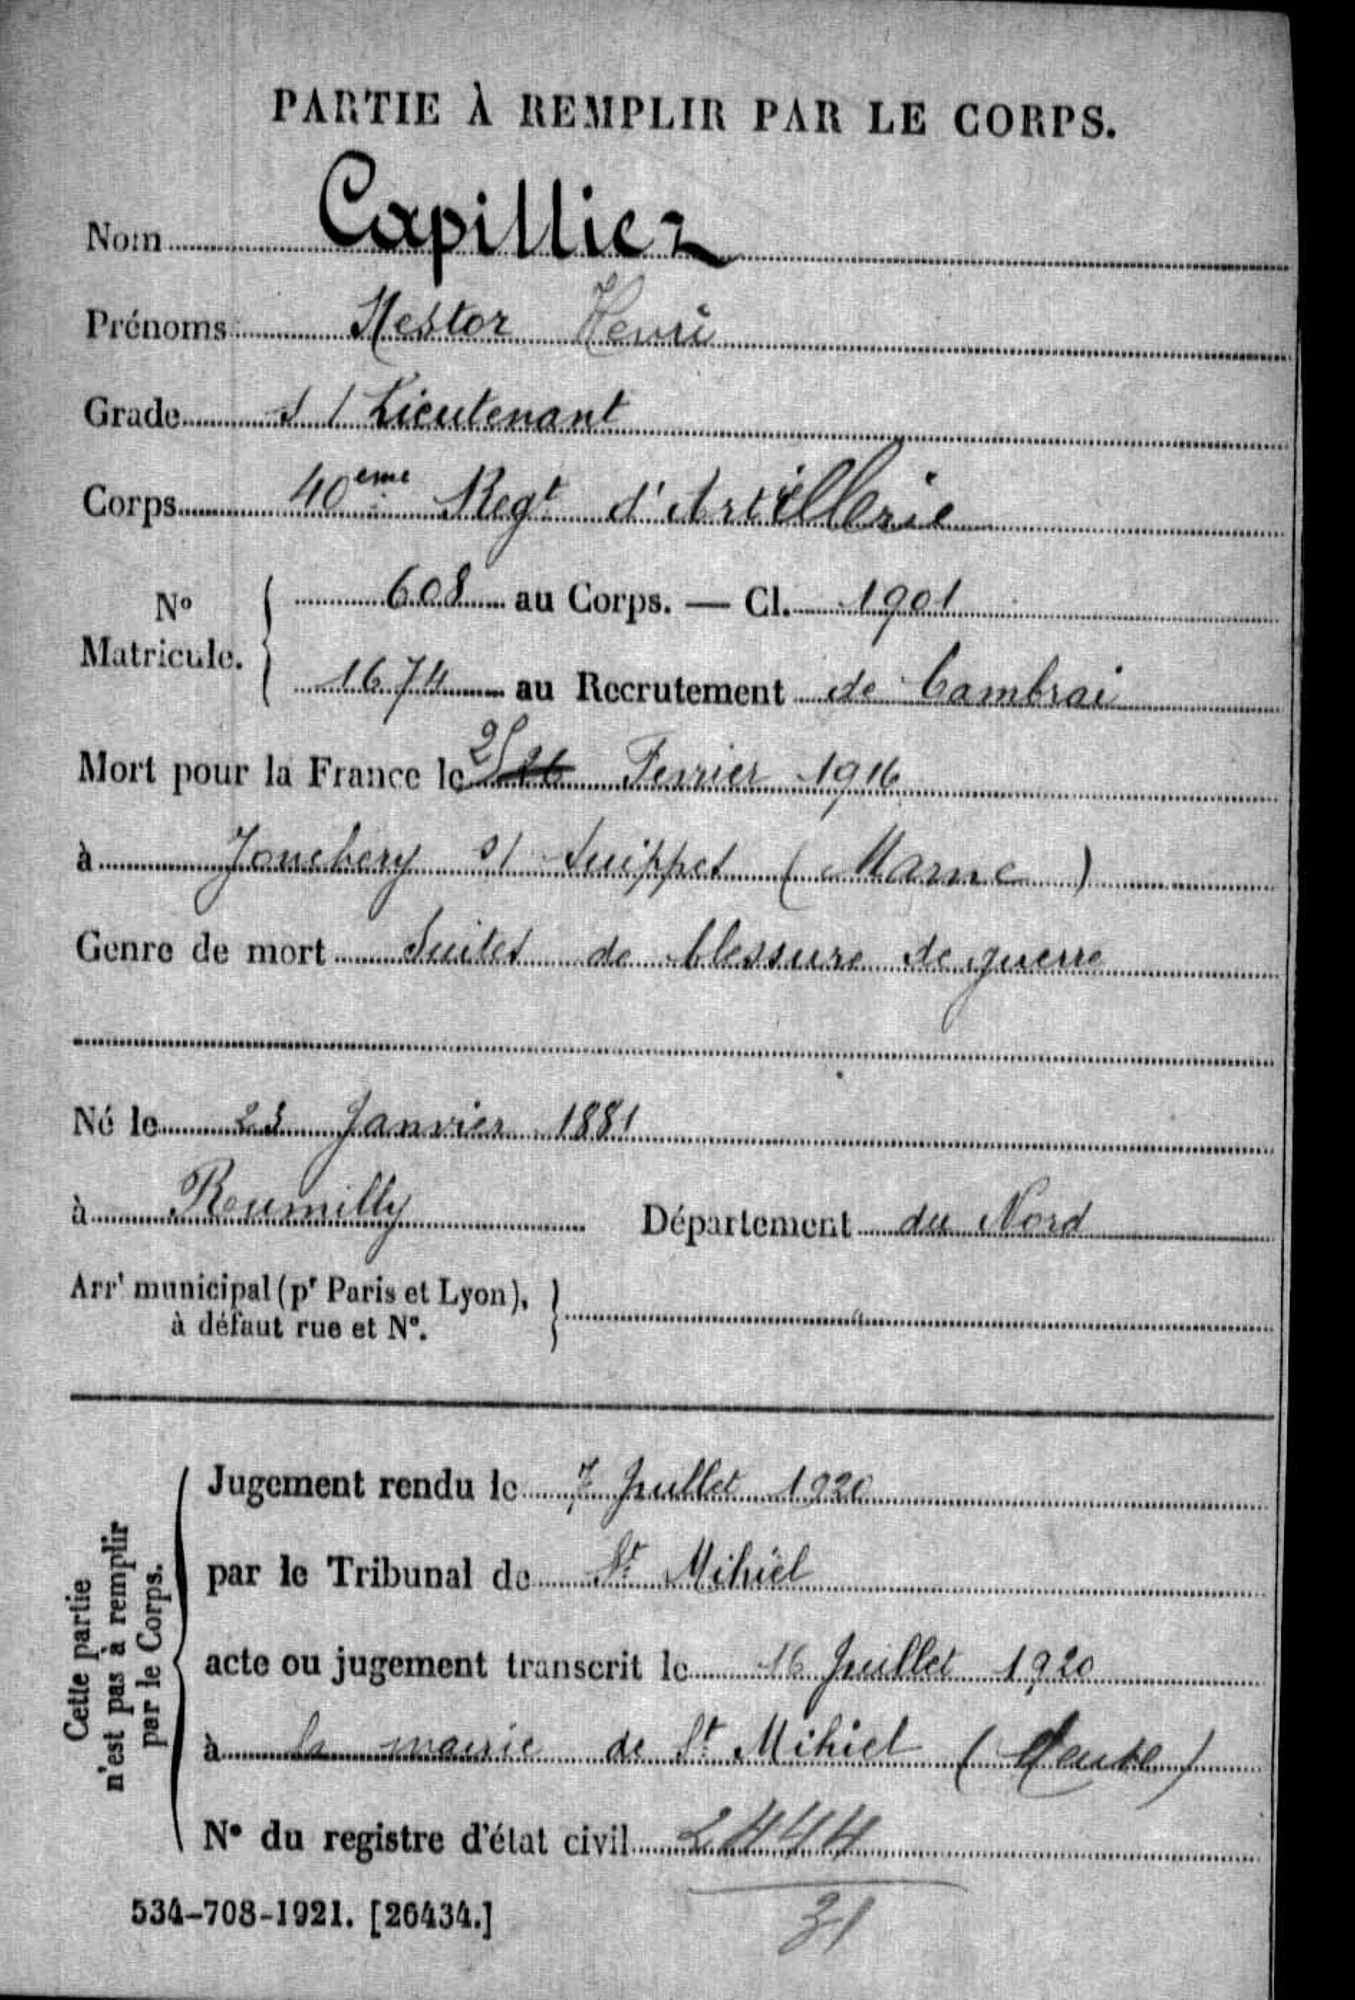 PARTIE À REMPLIR PAR LE CORPS.
Nom Capilliez
Prénoms Nestor Henri
Grade s/ Lieutenant
Corps 40eme Regt d'Artillerie
No Matricule. 608 au Corps. — Cl. 1901
1674 au Recrutement de Cambrai
Mort pour la France le 25 26 Fevrier 1916
à Jonchery s/ Suippes (Marne)
Genre de mort Suites de blessure de guerre
Né le 23 Janvier 1881
à Roumilly Département du Nord
Arrt municipal (pr Paris et Lyon),
à défaut rue et No.
Cette partie
n'est pas à remplir
par le Corps.
Jugement rendu le 7 Juillet 1920
par le Tribunal de St Mihiel
acte ou jugement transcrit le 16 Juillet 1920
à la mairie de St Mihiel (Meuse)
No du registre d'état civil 2444
31
534-708-1921. [26434.]